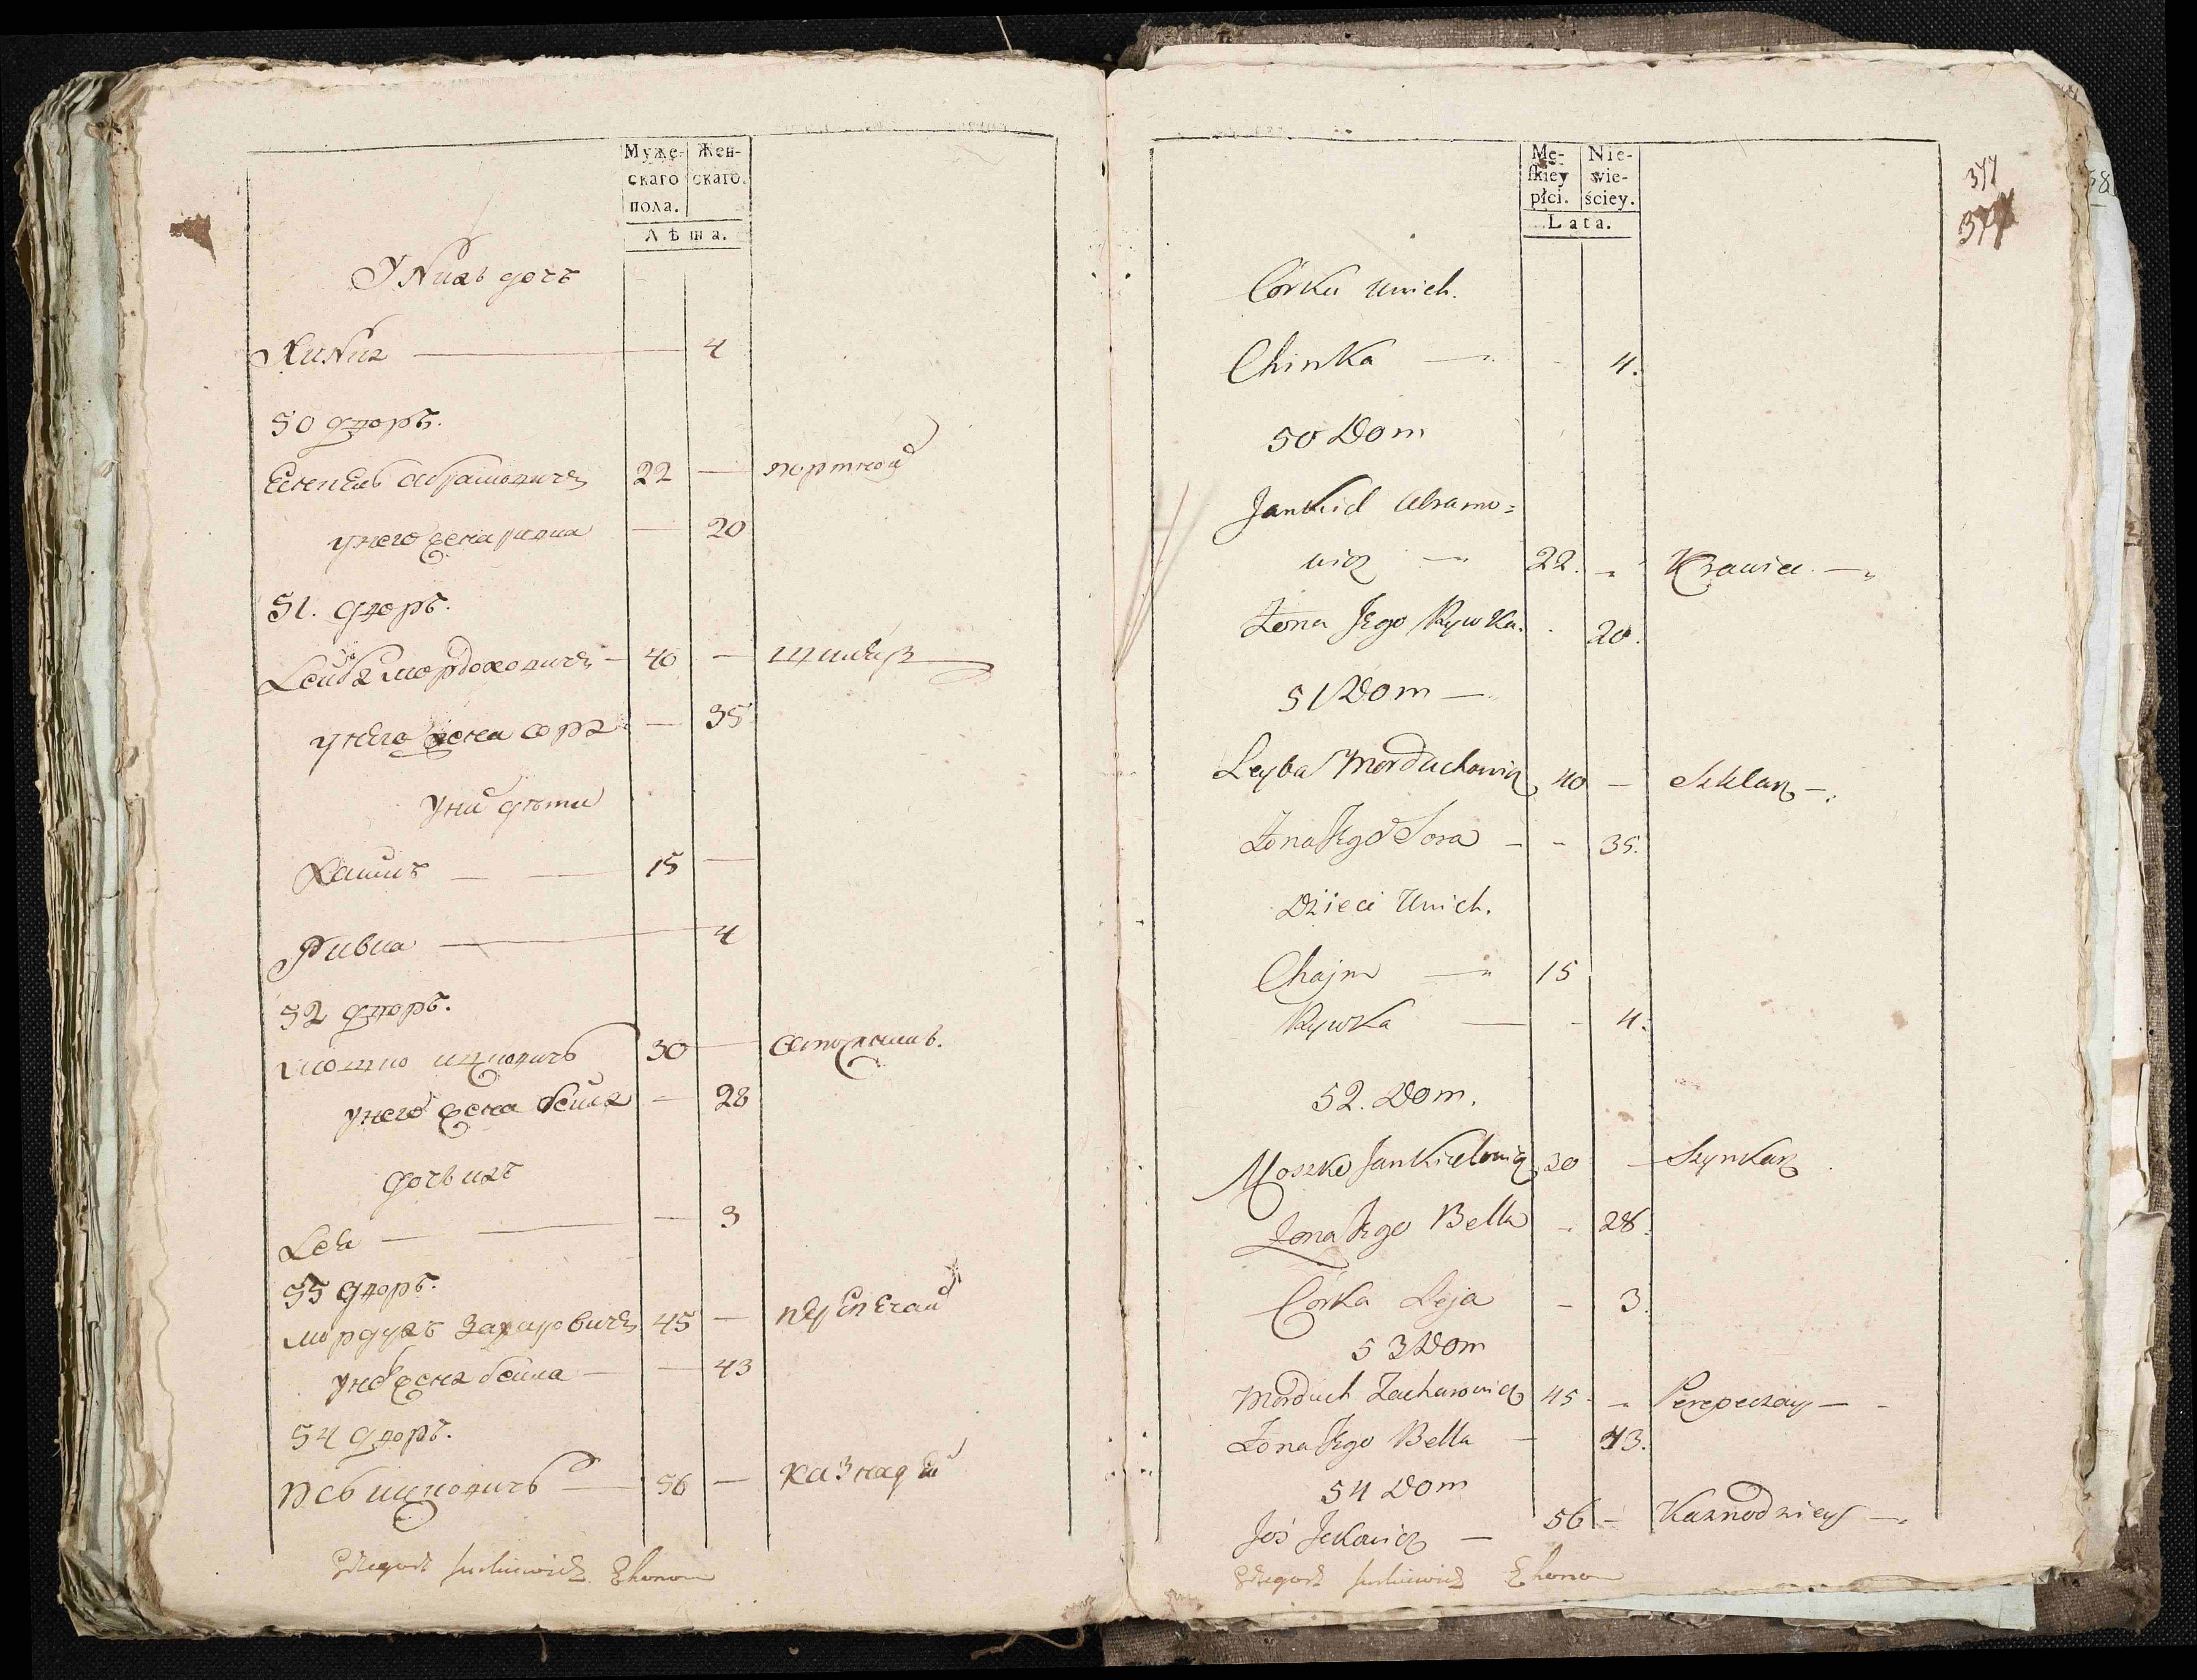 Муже- Жен-
скаго скаго.
пола.
Лѣта.
У нихъ дочъ
Хинка 4
50 дворъ.
Абрамовичъ 22 — портной
у него жена ривка — 20
51. дворъ.
Лейба мордоховичъ — 40 —
у него жена сора — 35
У них дѣти
Хаимъ — 15 —
Ривка — 4
52 дворъ.
мошко ицковичъ 30 —
у него жена бейла — 28
дочь ихъ
Лея — — 3
53 дворъ.
мордухъ Захаровичъ 45 — перепечай
жена бейла — — 43
54 дворъ.
ицковичъ — 56 — казнадей
Ekonom
Mę- Nie-
skiey wie-
płci. ściey.
Lata.
377
377
Córka Unich.
Chinka — 4.
50 Dom
Jankiel Abramo=
wicz — 22. Krawiec —
Żona Jego Rywka. 20.
51 Dom —
Leyba Morduchowicz 40 — Szklarz —
Żona Jego Sora — - 35.
Dzieci Unich.
Chajm — 15
Rywka — - 4.
52. Dom.
Moszko Jankielowicz 30 — Szynkarz
Żona Jego Bella - 28.
Córka Leja - 3.
53 Dom
Morduch Zacharowicz 45 - Perepeczay —
Żona Jego Bella — 43.
54 Dom
Joś Jckowicz — 56 — Kaznodziey —
Ekonom